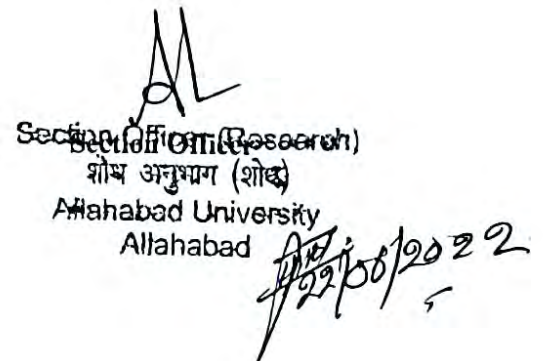 Section Officer (Research)
Section Officer
शोध अनुभाग (शोध)
Allahabad University
Allahabad
22/06/2022